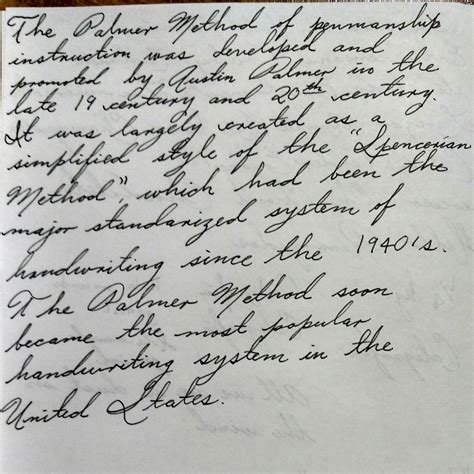 The Palmer Method of penmanship
instruction was developed and
promoted by Austin Palmer in the
late 19 century and 20th century.
It was largely created as a
simplified style of the "Spencerian
Method", which had been the
major standarized system of
handwriting since the 1940's.
The Palmer Method soon
became the most popular
handwriting system in the
United States.